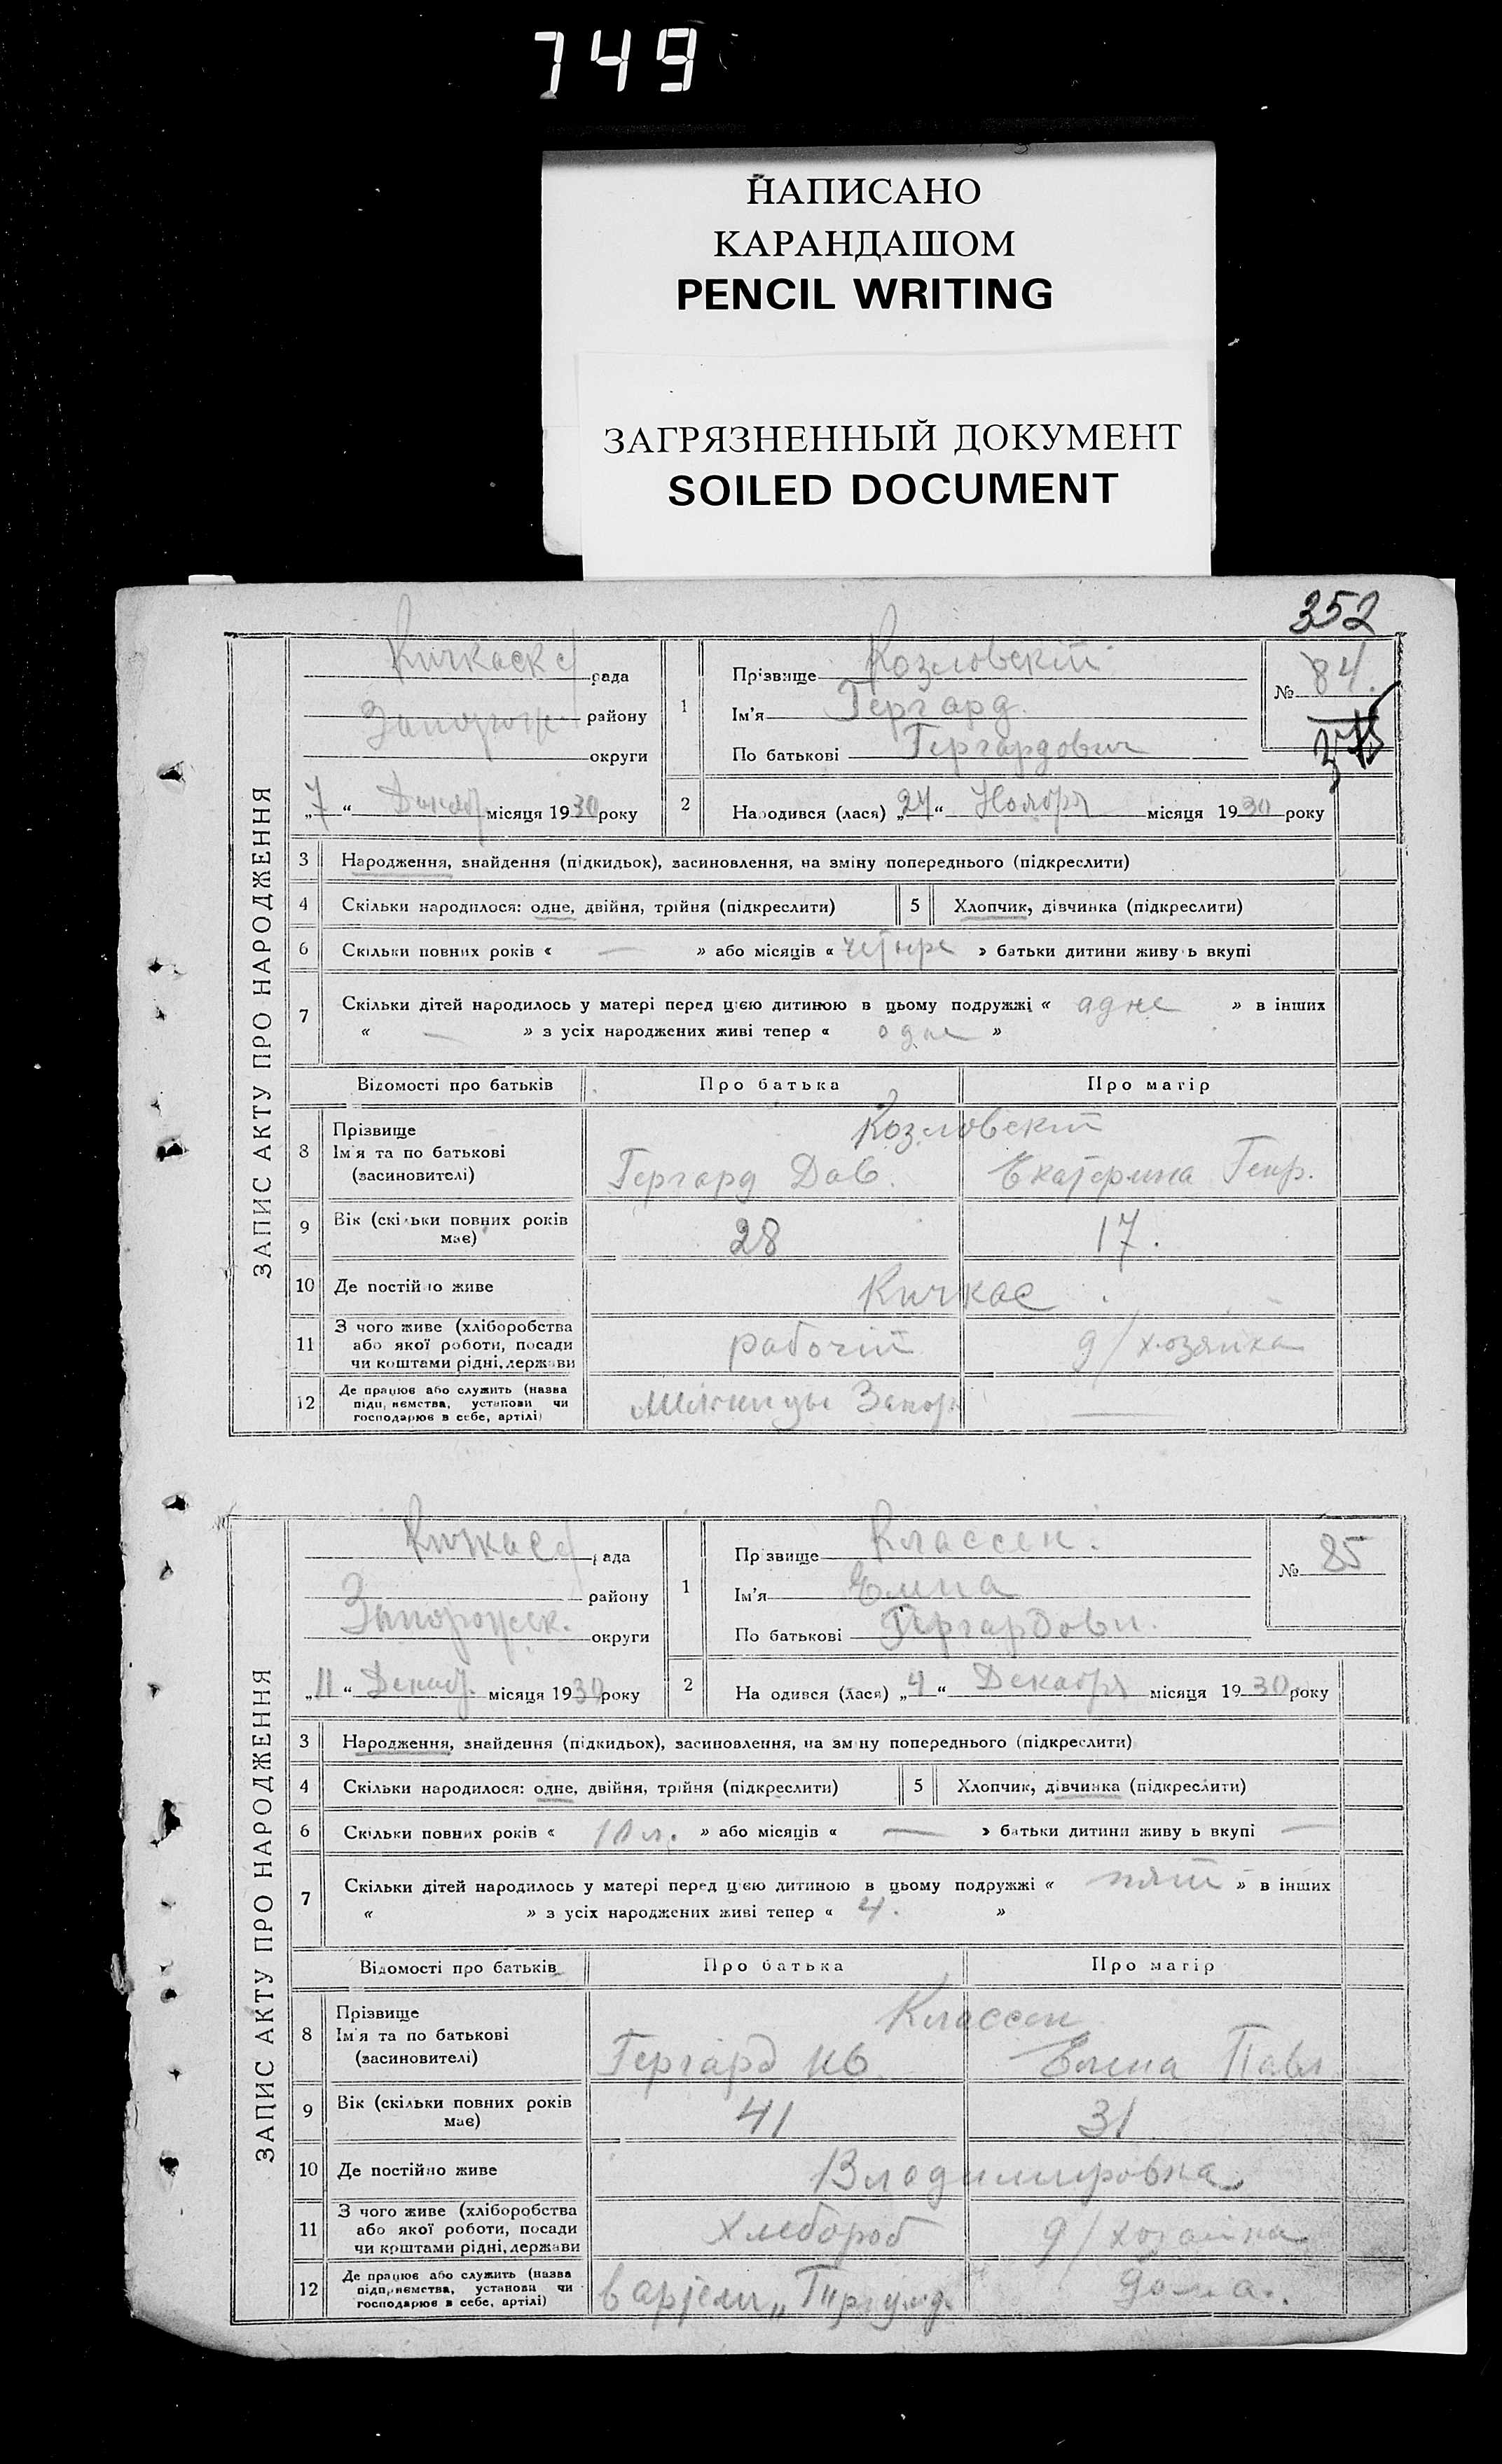 749
НАПИСАНО
КАРАНДАШОМ
PENCIL WRITING
ЗАГРЯЗНЕННЫЙ ДОКУМЕНТ
SOILED DOCUMENT
352
ЗАПИС АКТУ ПРО НАРОДЖЕННЯ
Кичкаск рада
Запорож району
округи
„7“ Декаб місяця 1930 року
1 Прізвище Козловскій
Ім'я Гергард
По батькові Гергардович
№ 84.
2 Народився (лася) „24“ Ноября місяця 1930 року
3 Народження, знайдення (підкидьок), засиновлення, на зміну попереднього (підкреслити)
4 Скільки народилося: одне, двійня, трійня (підкреслити) 5 Хлопчик, дівчинка (підкреслити)
6 Скільки повних років « — » або місяців « четыре » батьки дитини живуть вкупі
7 Скільки дітей народилось у матері перед цією дитиною в цьому подружжі « адне » в інших
« — » з усіх народжених живі тепер « одне »
Відомості про батьків Про батька Про матір
8 Прізвище Козловскій
Ім'я та по батькові
(засиновителі) Гергард Дав. Екатерина Генр.
9 Вік (скільки повних років
має) 28 17.
10 Де постійно живе Кичкас
11 З чого живе (хліборобства
або якої роботи, посади
чи коштами рідні, держави рабочій д/хозяйка
12 Де працює або служить (назва
підприємства, установи чи
господарює в себе, артілі) Запор. —
ЗАПИС АКТУ ПРО НАРОДЖЕННЯ
Кичкас рада
району
Запорожск. округи
„11“ Декаб. місяця 1930 року
1 Прізвище Классен.
Ім'я Елена
По батькові Гергардовн.
№ 85
2 Народився (лася) „4“ Декабря місяця 1930 року
3 Народження, знайдення (підкидьок), засиновлення, на зміну попереднього (підкреслити)
4 Скільки народилося: одне, двійня, трійня (підкреслити) 5 Хлопчик, дівчинка (підкреслити)
6 Скільки повних років « 10 л. » або місяців « — » батьки дитини живуть вкупі —
7 Скільки дітей народилось у матері перед цією дитиною в цьому подружжі « пят » в інших
« » з усіх народжених живі тепер « 4. »
Відомості про батьків Про батька Про матір
8 Прізвище Классен
Ім'я та по батькові
(засиновителі) Гергард Елена Павл
9 Вік (скільки повних років
має) 41 31
10 Де постійно живе Владимировка
11 З чого живе (хліборобства
або якої роботи, посади
чи коштами рідні, держави Хлебороб д/хозайка
12 Де працює або служить (назва
підприємства, установи чи
господарює в себе, артілі) в артели дома.